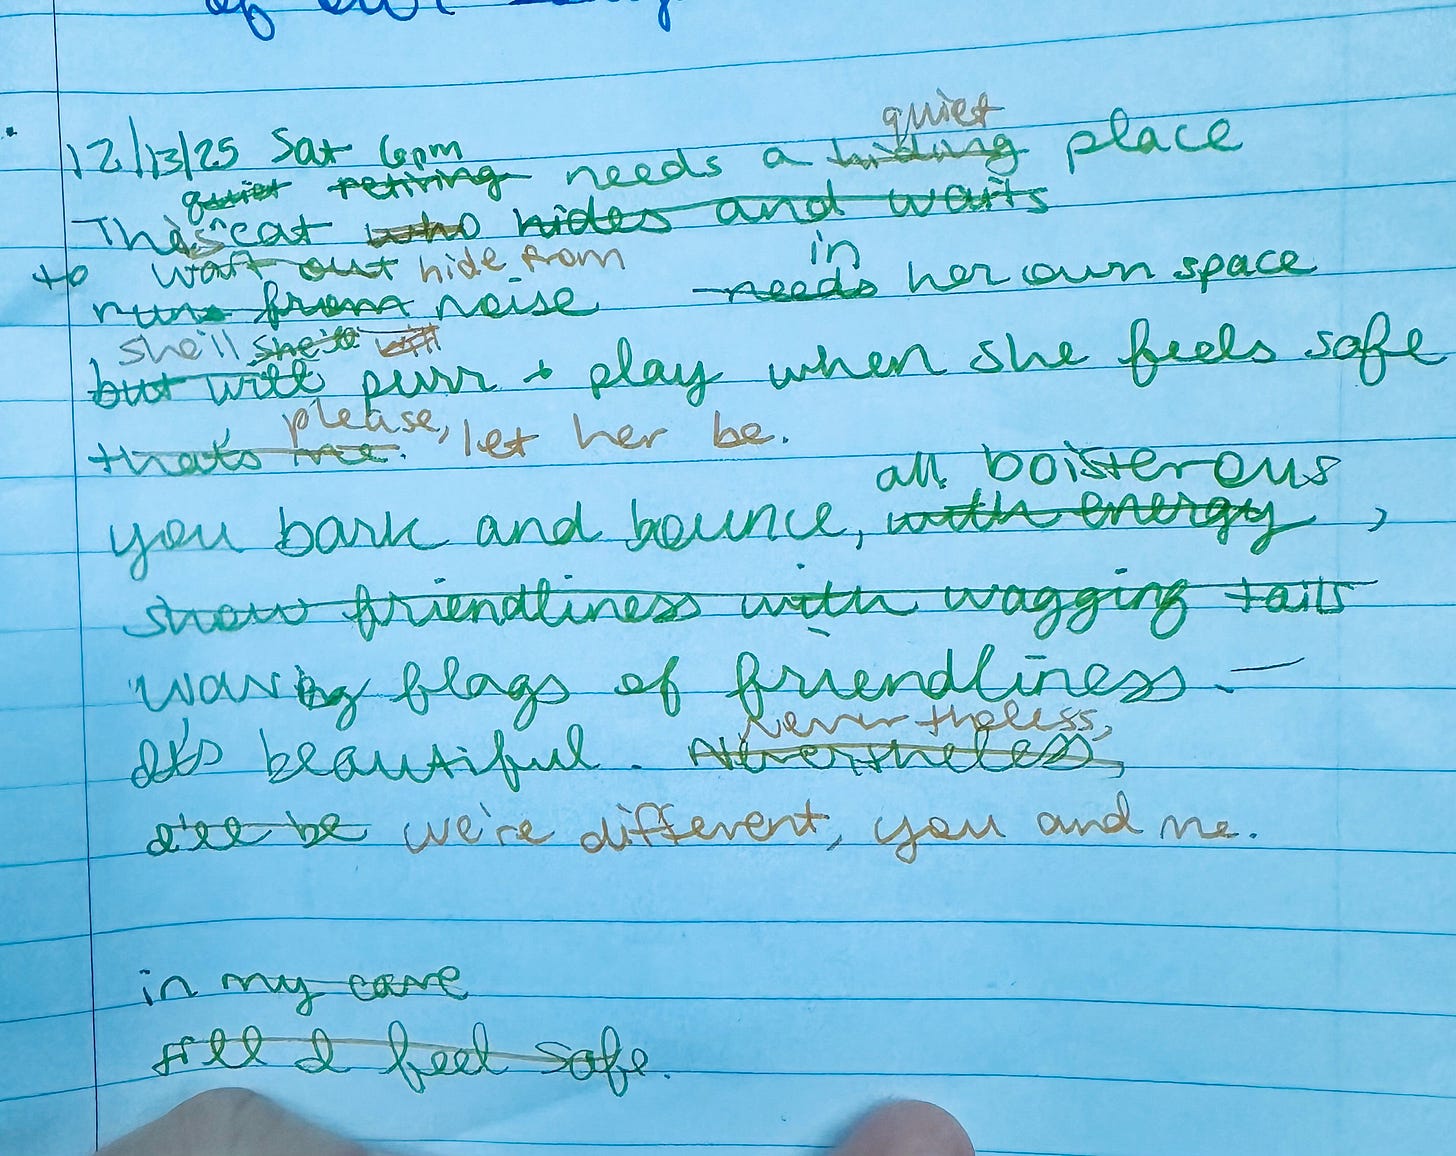 of our
12/13/25 Sat 6pm
quiet
quiet retiring needs a hiding place
This cat who hides and waits
to wait out hide from in
runs from noise needs her own space
she'll she'll will
but will purr + play when she feels safe
please, let her be.
that's me.
all boisterous
you bark and bounce, with energy,
show friendliness with wagging tails
waving flags of friendliness. —
nevertheless,
It's beautiful. Nevertheless,
I'll be we're different, you and me.
in my cave
till I feel safe.